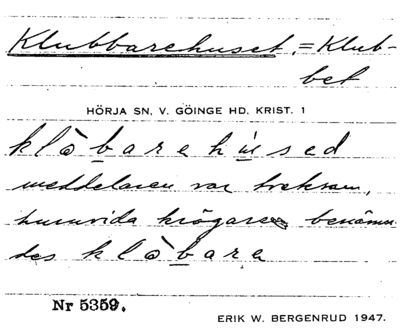 Klubbarehuset, = Klub-
bet
HÖRJA SN, V. GÖINGE HD. KRIST. 1
klo̊barehúsed
meddelaren var tveksam,
huruvida krögaren benämn-
des klo̊bara
Nr 5359.
ERIK W. BERGENRUD 1947.